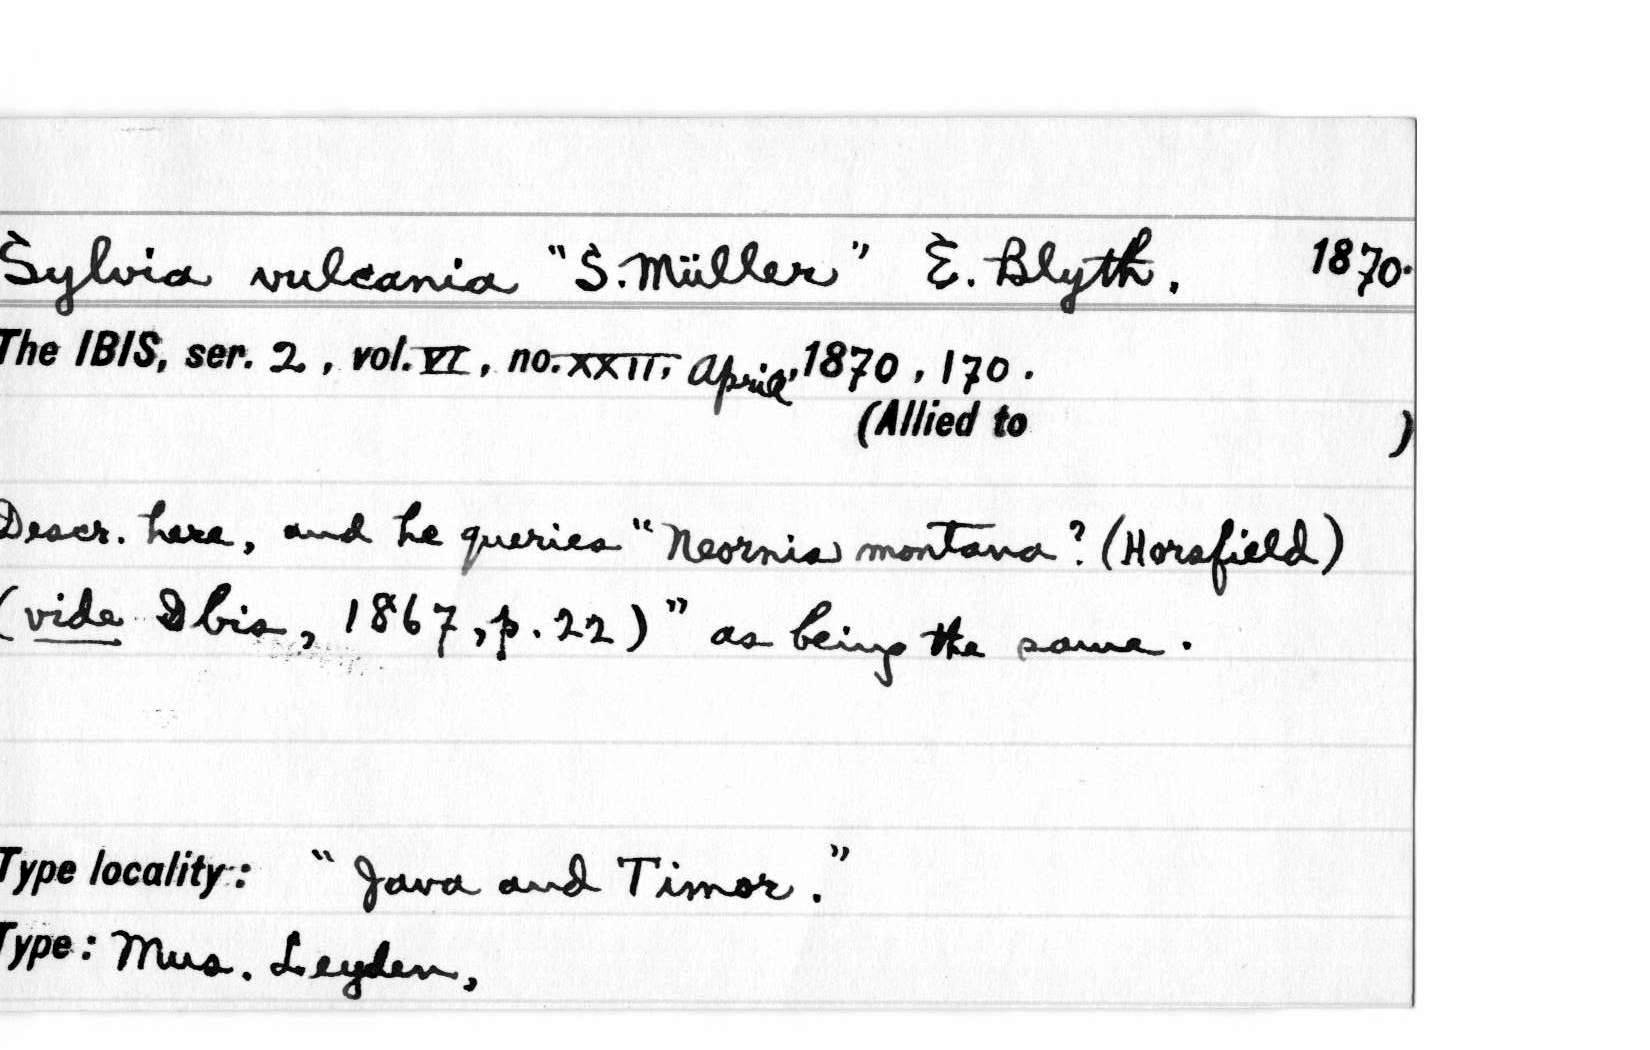 Sylvia vulcania "S. Müller" E. Blyth. 1870.
The IBIS, ser. 2, vol. VI, no. XXII, April, 1870, 170.
(Allied to )
Descr. here, and he queries "Neornis montana? (Horsfield)
(vide Ibis, 1867, p. 22)" as being the same.
Type locality: "Java and Timor."
Type: Mus. Leyden,